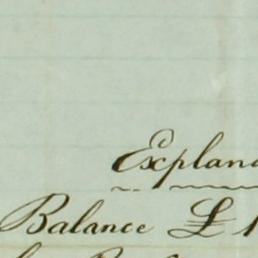 Explana
Balance £ 1